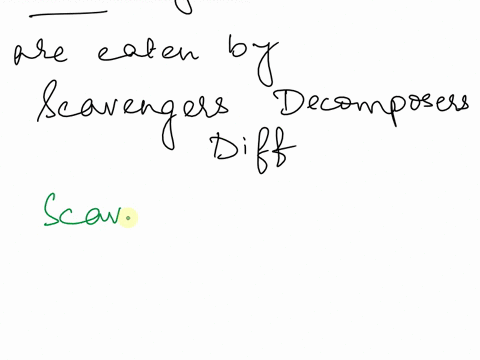 are eaten by
Scavengers Decomposers
Diff
Scav